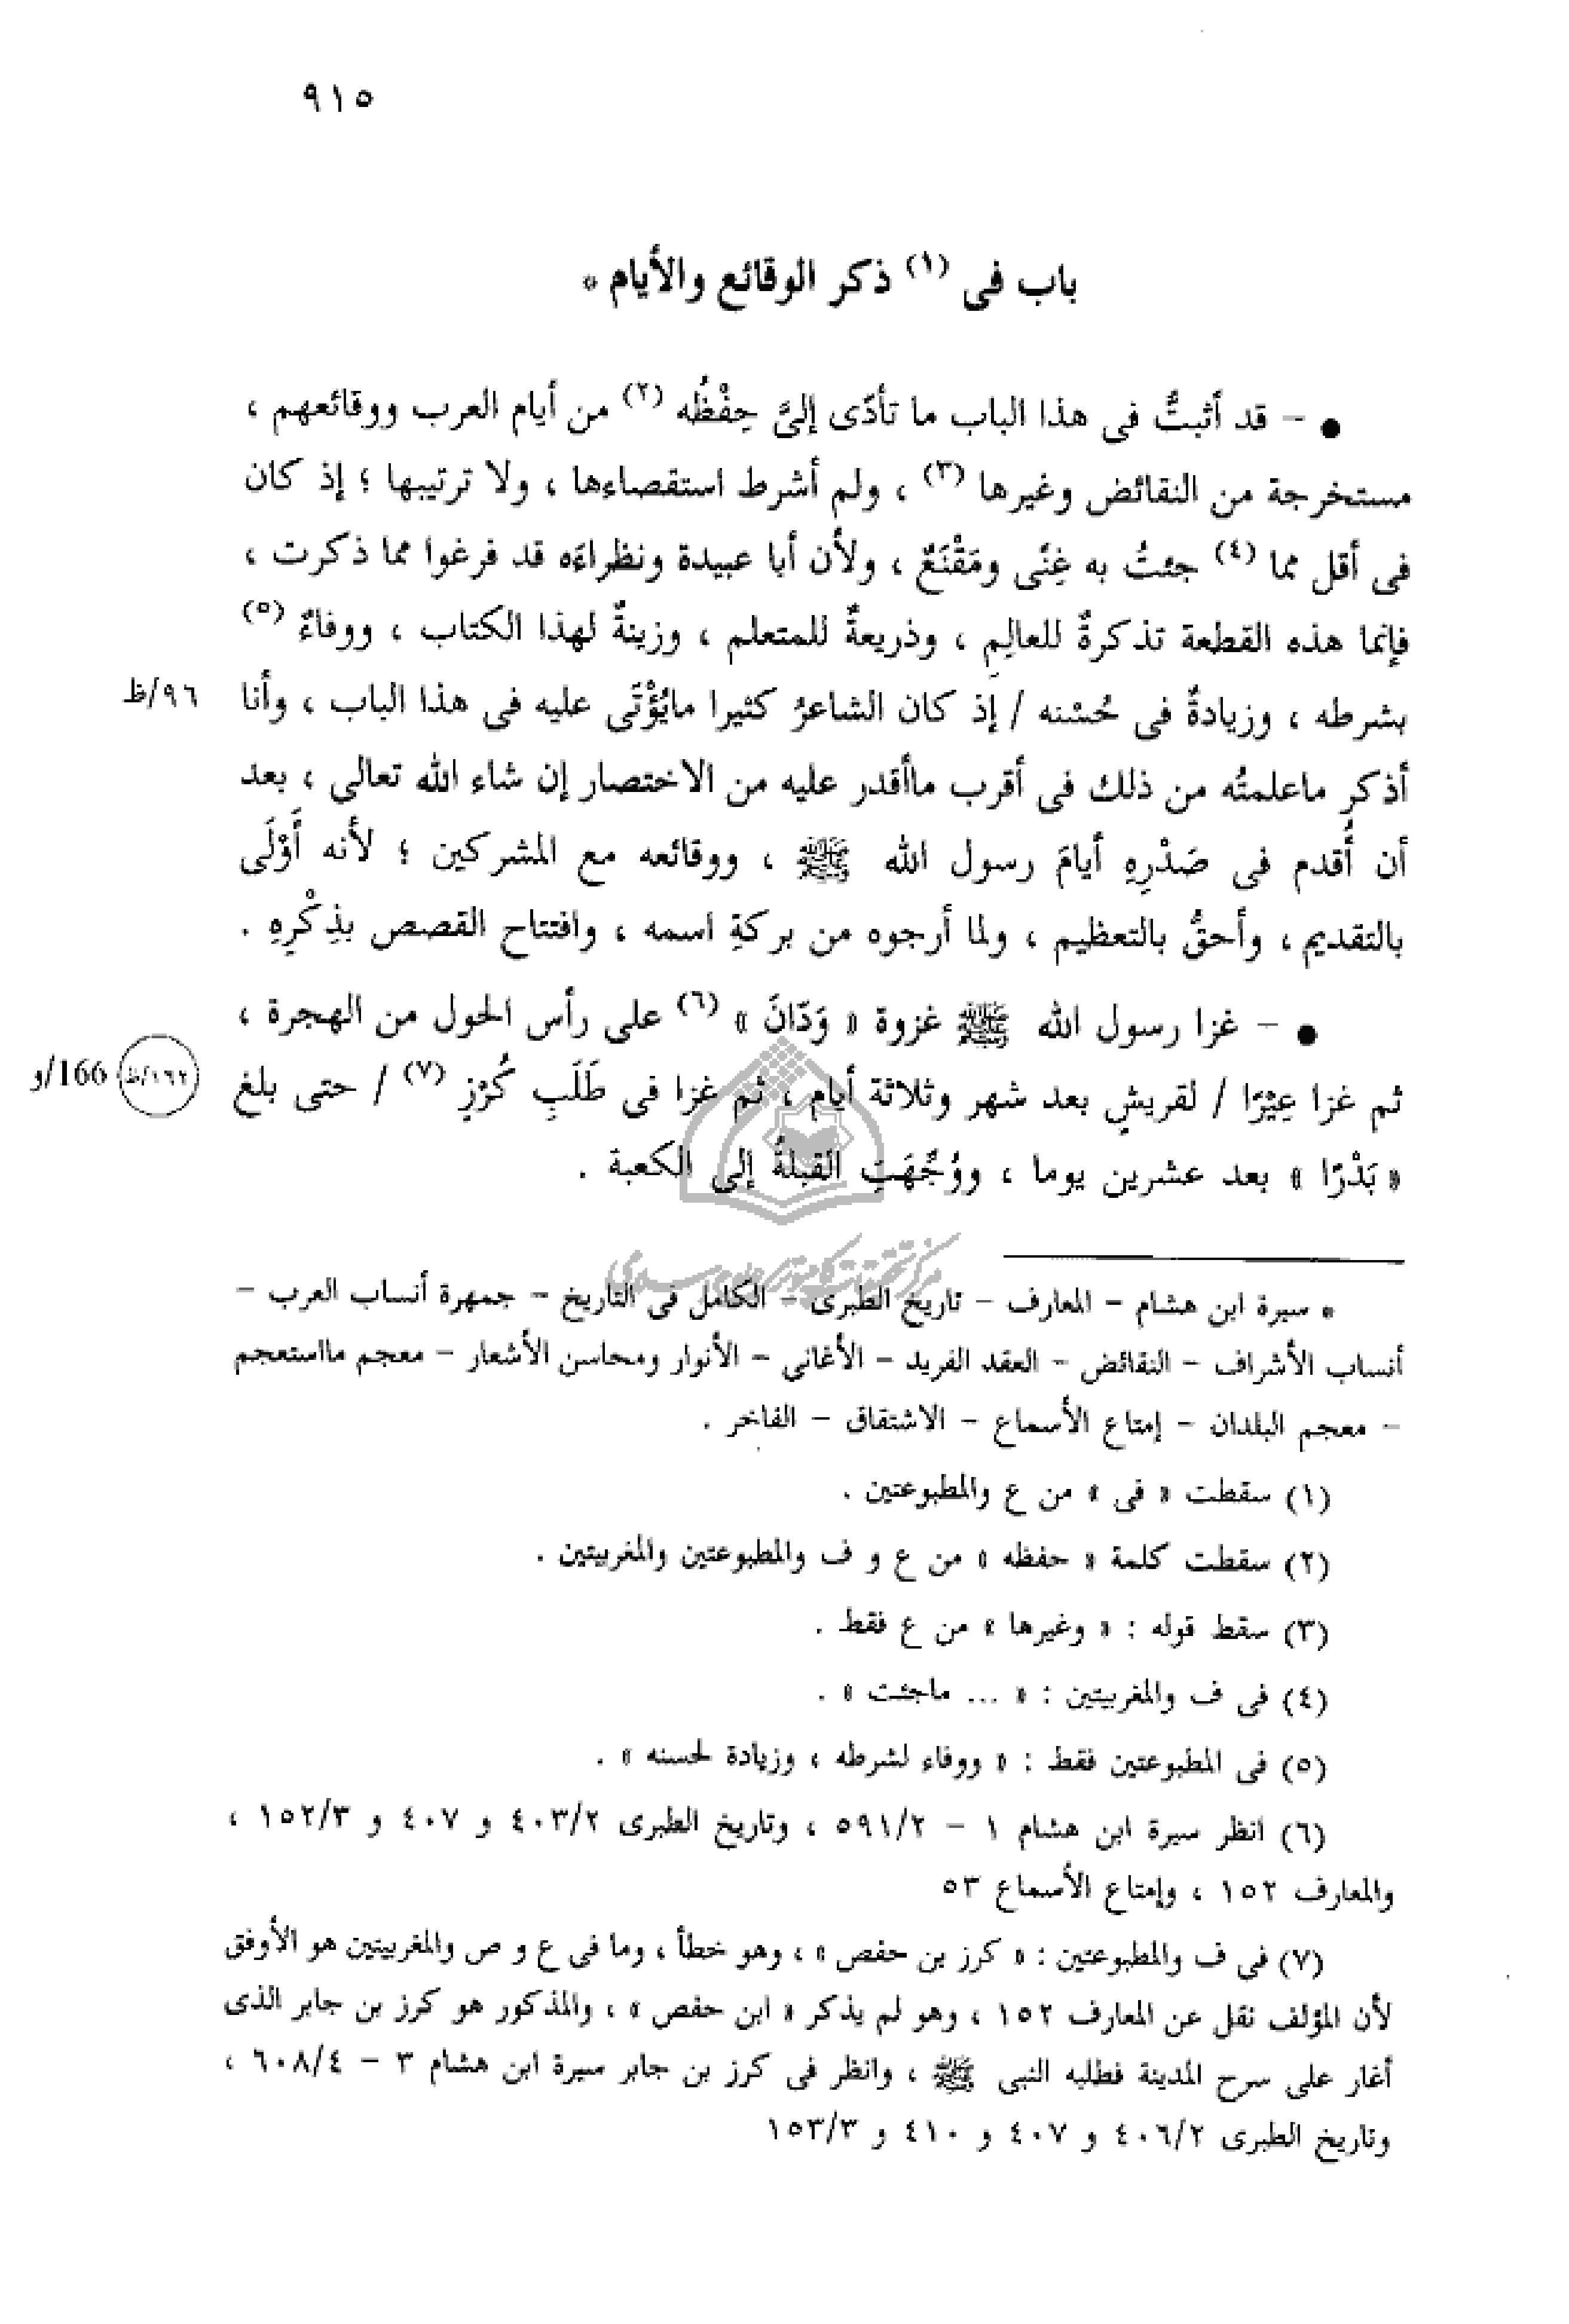 ٩١٥
باب فى (١) ذكر الوقائع والأيام *
● - قد أثبتُّ فى هذا الباب ما تأدّى إلىَّ حِفْظُه (٢) من أيام العرب ووقائعهم ،
مستخرجة من النقائض وغيرها (٣) ، ولم أشرط استقصاءها ، ولا ترتيبها ؛ إذ كان
فى أقل مما (٤) جئتُ به غِنًى ومَقْنَعٌ ، ولأن أبا عبيدة ونظراءَه قد فرغوا مما ذكرت ،
فإنما هذه القطعة تذكرةٌ للعالِمِ ، وذريعةٌ للمتعلم ، وزينةٌ لهذا الكتاب ، ووفاءٌ (٥)
بشرطه ، وزيادةٌ فى حُسْنه / إذ كان الشاعرُ كثيرا مايُؤْتَى عليه فى هذا الباب ، وأنا ٩٦/ظ
أذكر ماعلمتُه من ذلك فى أقرب ماأقدر عليه من الاختصار إن شاء الله تعالى ، بعد
أن أُقدم فى صَدْرِهِ أيامَ رسول الله ﷺ ، ووقائعه مع المشركين ؛ لأنه أَوْلَى
بالتقديم ، وأحقُّ بالتعظيم ، ولما أرجوه من بركةِ اسمه ، وافتتاح القصص بذِكْرِهِ .
● - غزا رسول الله ﷺ غزوة « وَدّانَ » (٦) على رأس الحول من الهجرة ،
ثم غزا عِيْرًا / لقريشٍ بعد شهر وثلاثة أيام ، ثم غزا فى طَلَبِ كُرْزٍ (٧) / حتى بلغ ١٦٢/ظ 166/و
« بَدْرًا » بعد عشرين يوما ، ووُجِّهَتِ القبلةُ إلى الكعبة .
* سيرة ابن هشام - المعارف - تاريخ الطبرى - الكامل فى التاريخ - جمهرة أنساب العرب -
أنساب الأشراف - النقائض - العقد الفريد - الأغانى - الأنوار ومحاسن الأشعار - معجم مااستعجم
- معجم البلدان - إمتاع الأسماع - الاشتقاق - الفاخر .
(١) سقطت « فى » من ع والمطبوعتين .
(٢) سقطت كلمة « حفظه » من ع و ف والمطبوعتين والمغربيتين .
(٣) سقط قوله : « وغيرها » من ع فقط .
(٤) فى ف والمغربيتين : « ... ماجئت » .
(٥) فى المطبوعتين فقط : « ووفاء لشرطه ، وزيادة لحسنه » .
(٦) انظر سيرة ابن هشام ١ - ٥٩١/٢ ، وتاريخ الطبرى ٤٠٣/٢ و ٤٠٧ و ١٥٢/٣ ،
والمعارف ١٥٢ ، وإمتاع الأسماع ٥٣
(٧) فى ف والمطبوعتين : « كرز بن حفص » ، وهو خطأ ، وما فى ع و ص والمغربيتين هو الأوفق
لأن المؤلف نقل عن المعارف ١٥٢ ، وهو لم يذكر « ابن حفص » ، والمذكور هو كرز بن جابر الذى
أغار على سرح المدينة فطلبه النبى ﷺ ، وانظر فى كرز بن جابر سيرة ابن هشام ٣ - ٦٠٨/٤ ،
وتاريخ الطبرى ٤٠٦/٢ و ٤٠٧ و ٤١٠ و ١٥٣/٣